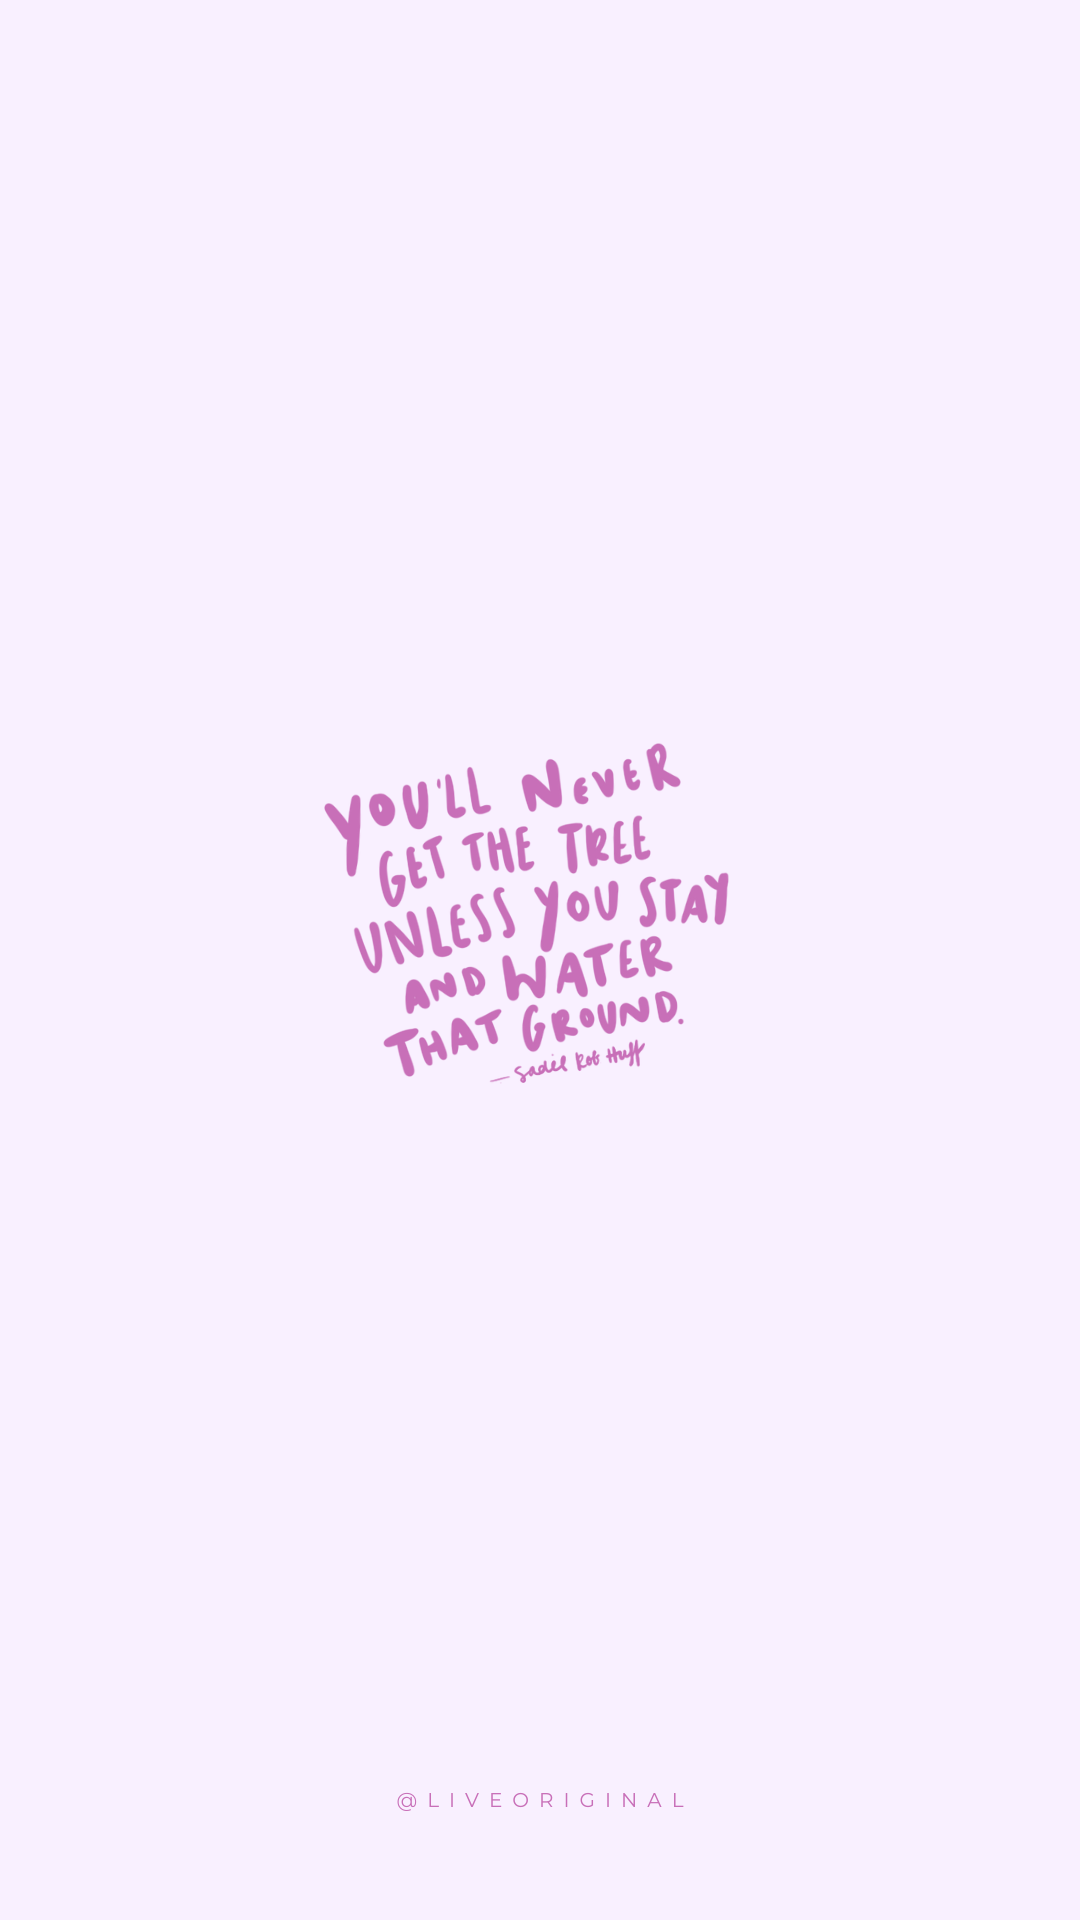 YOU'LL NEVER
GET THE TREE
UNLESS YOU STAY
AND WATER
THAT GROUND.
— Sadie Rob Huff
@LIVEORIGINAL